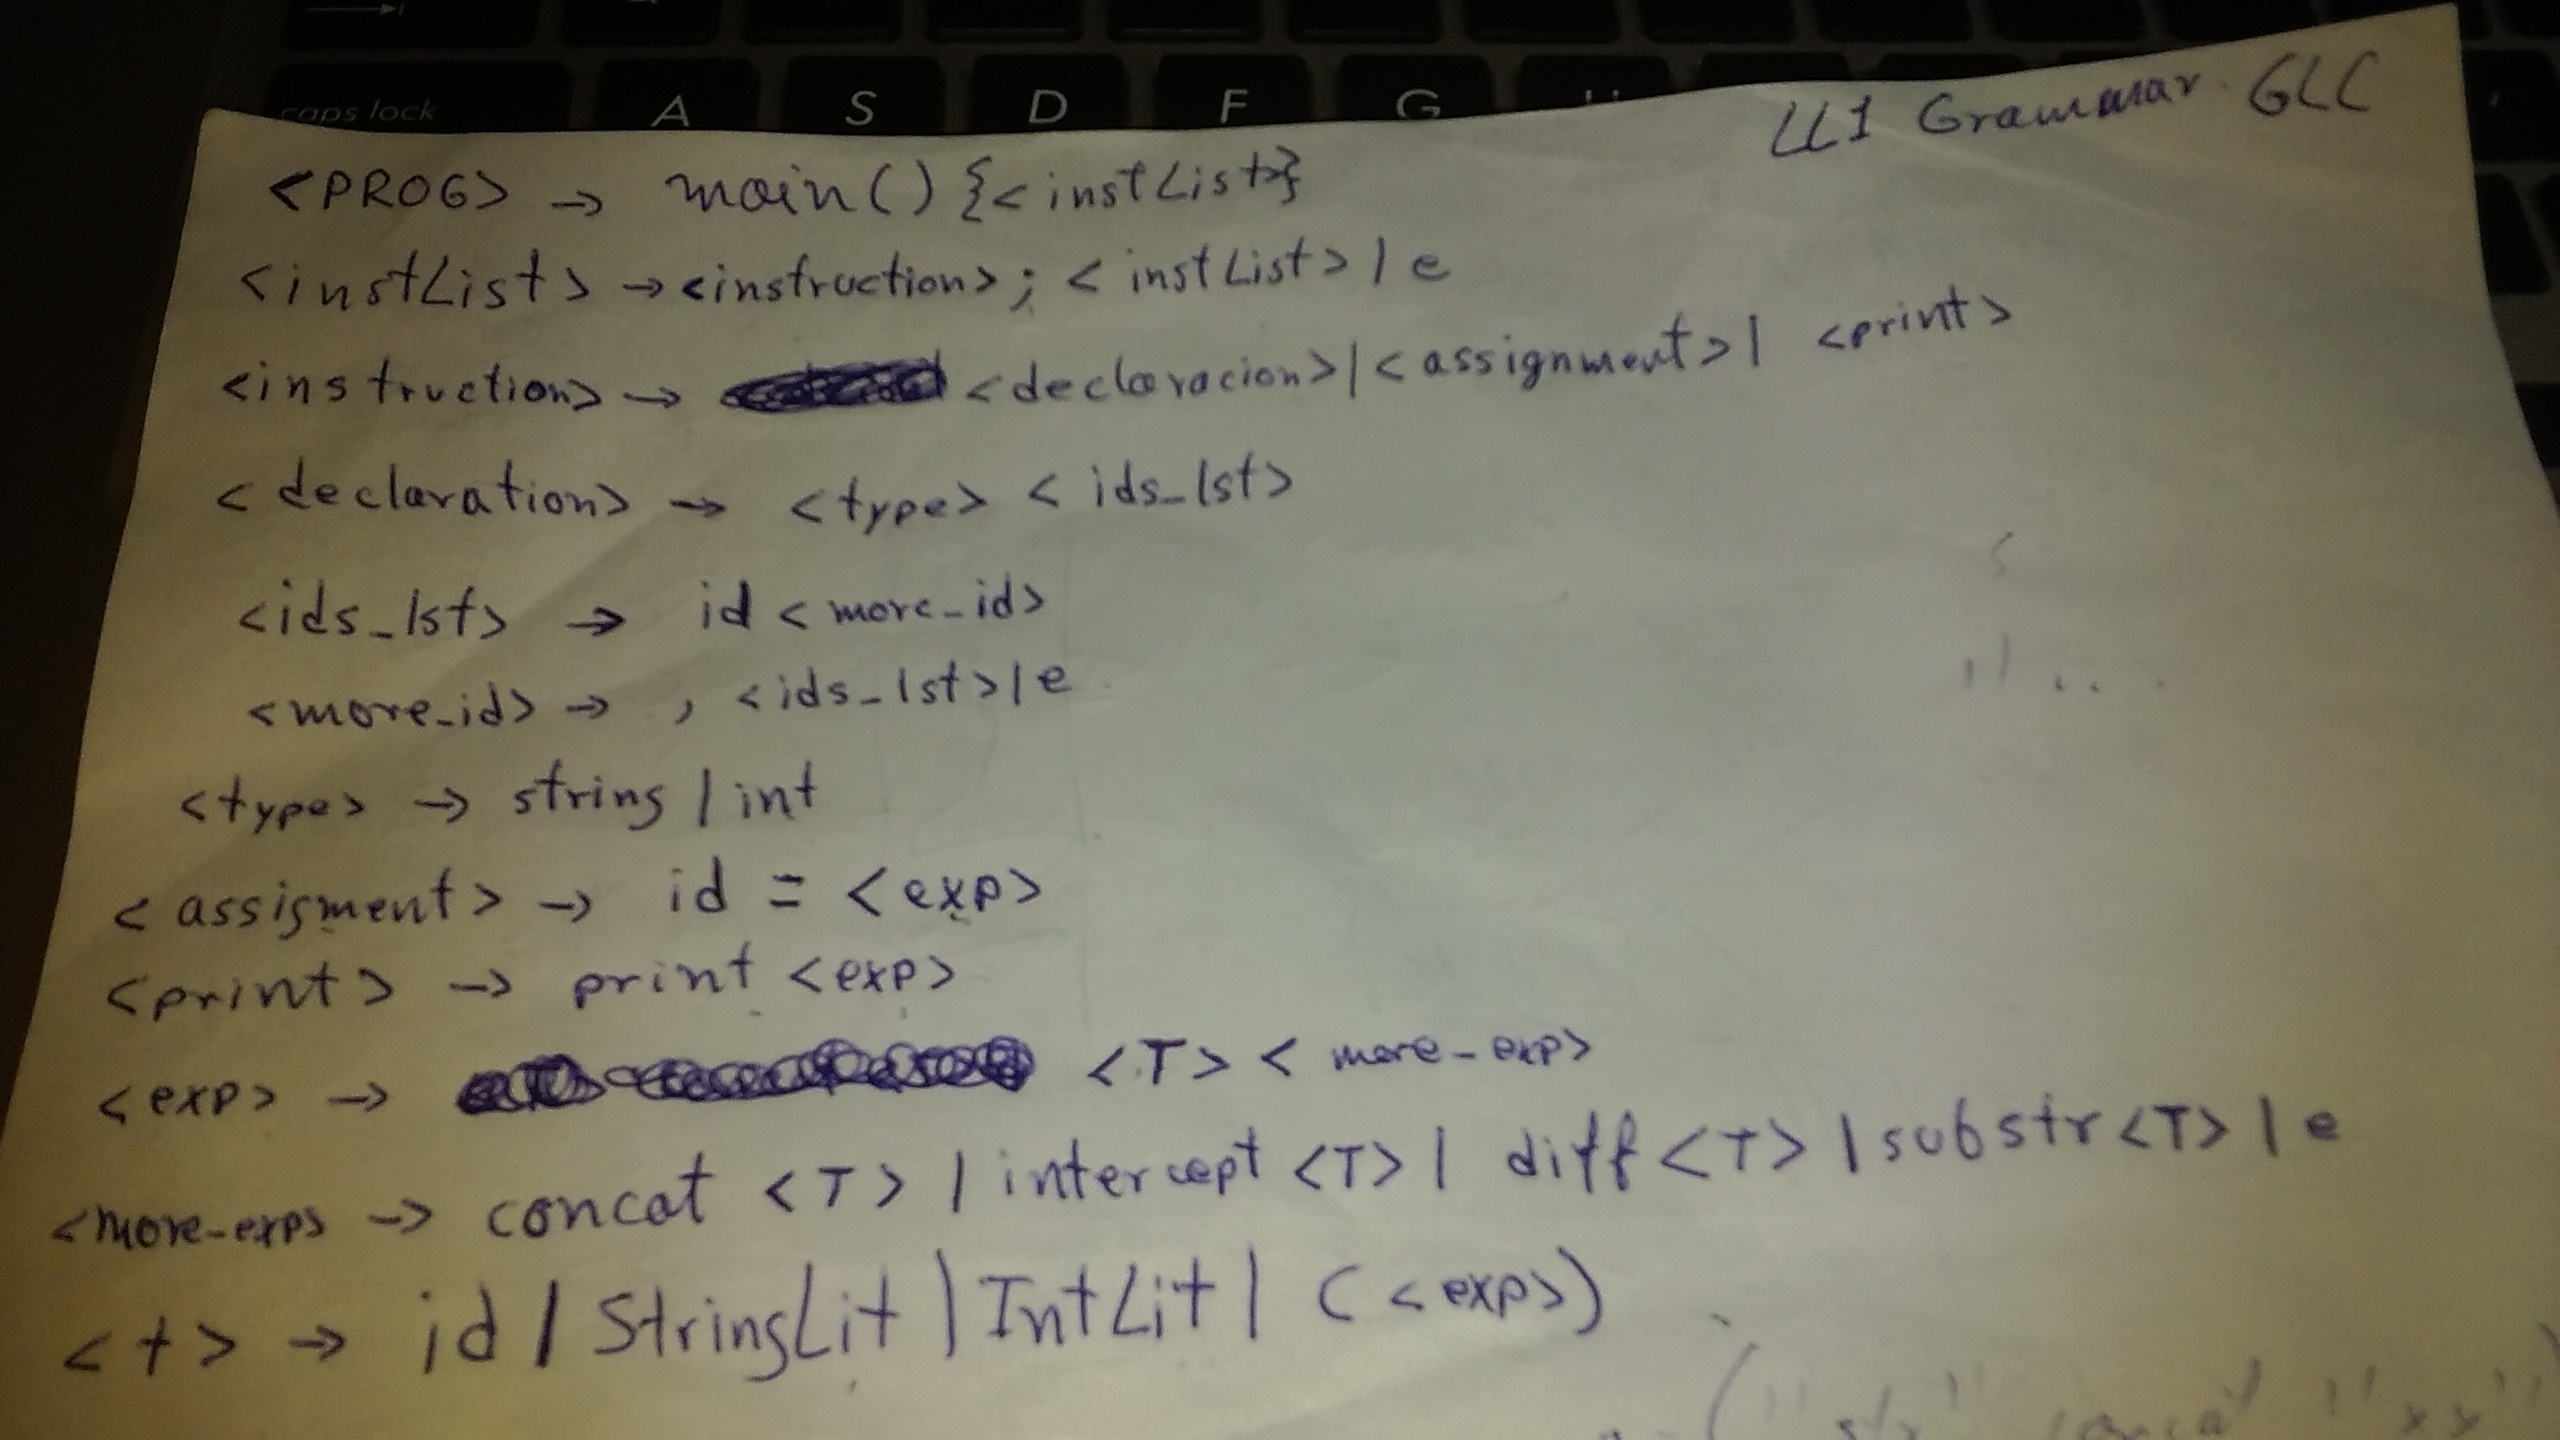 caps lock A S D F G
LL1 Grammar GLC
<PROG> → main(){<instList>}
<instList> → <instruction>; <instList> | e
<instruction> → <declaracion> | <assignment> | <print>
<declaration> → <type> <ids_lst>
<ids_lst> → id <more_id>
<more_id> → , <ids_lst> | e
<type> → string | int
<assigment> → id = <exp>
<print> → print <exp>
<exp> → <T> <more-exp>
<more-exp> → concat <T> | intercept <T> | diff <T> | substr <T> | e
<t> → id | StringLit | IntLit | (<exp>)